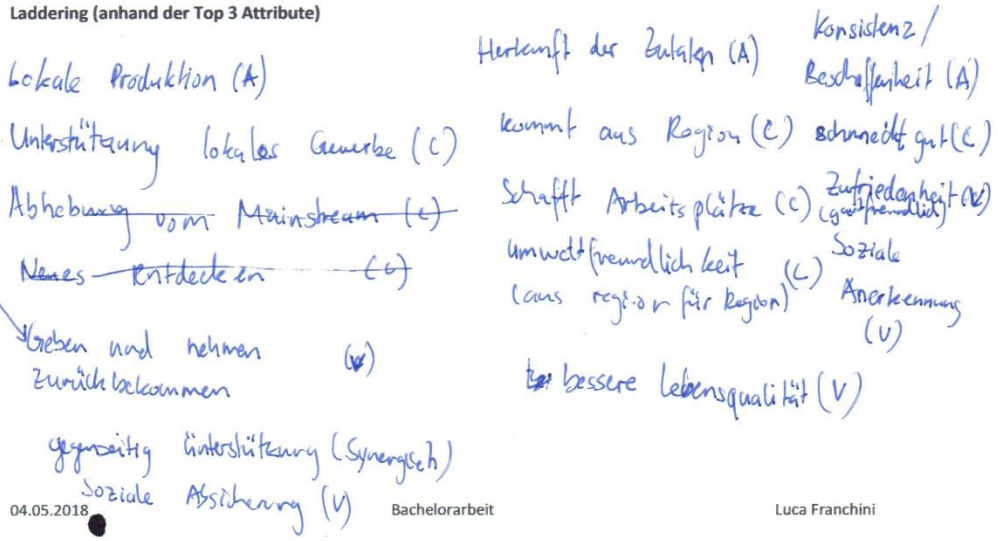 Laddering (anhand der Top 3 Attribute)
Lokale Produktion (A)
Unterstützung lokales Gewerbe (C)
Abhebung vom Mainstream (C)
Neues entdecken (C)
Geben und nehmen (V)
Zurückbekommen
gegenseitig Unterstützung (Synergisch)
Soziale Absicherung (V)
Herkunft der Zutaten (A)
kommt aus Region (C)
Schafft Arbeitsplätze (C)
Umweltfreundlichkeit (C)
(aus region für Region)
bessere Lebensqualität (V)
Konsistenz /
Beschaffenheit (A)
schmeckt gut (C)
Zufriedenheit (V)
(gastfreundlich)
Soziale
Anerkennung
(V)
04.05.2018 Bachelorarbeit Luca Franchini